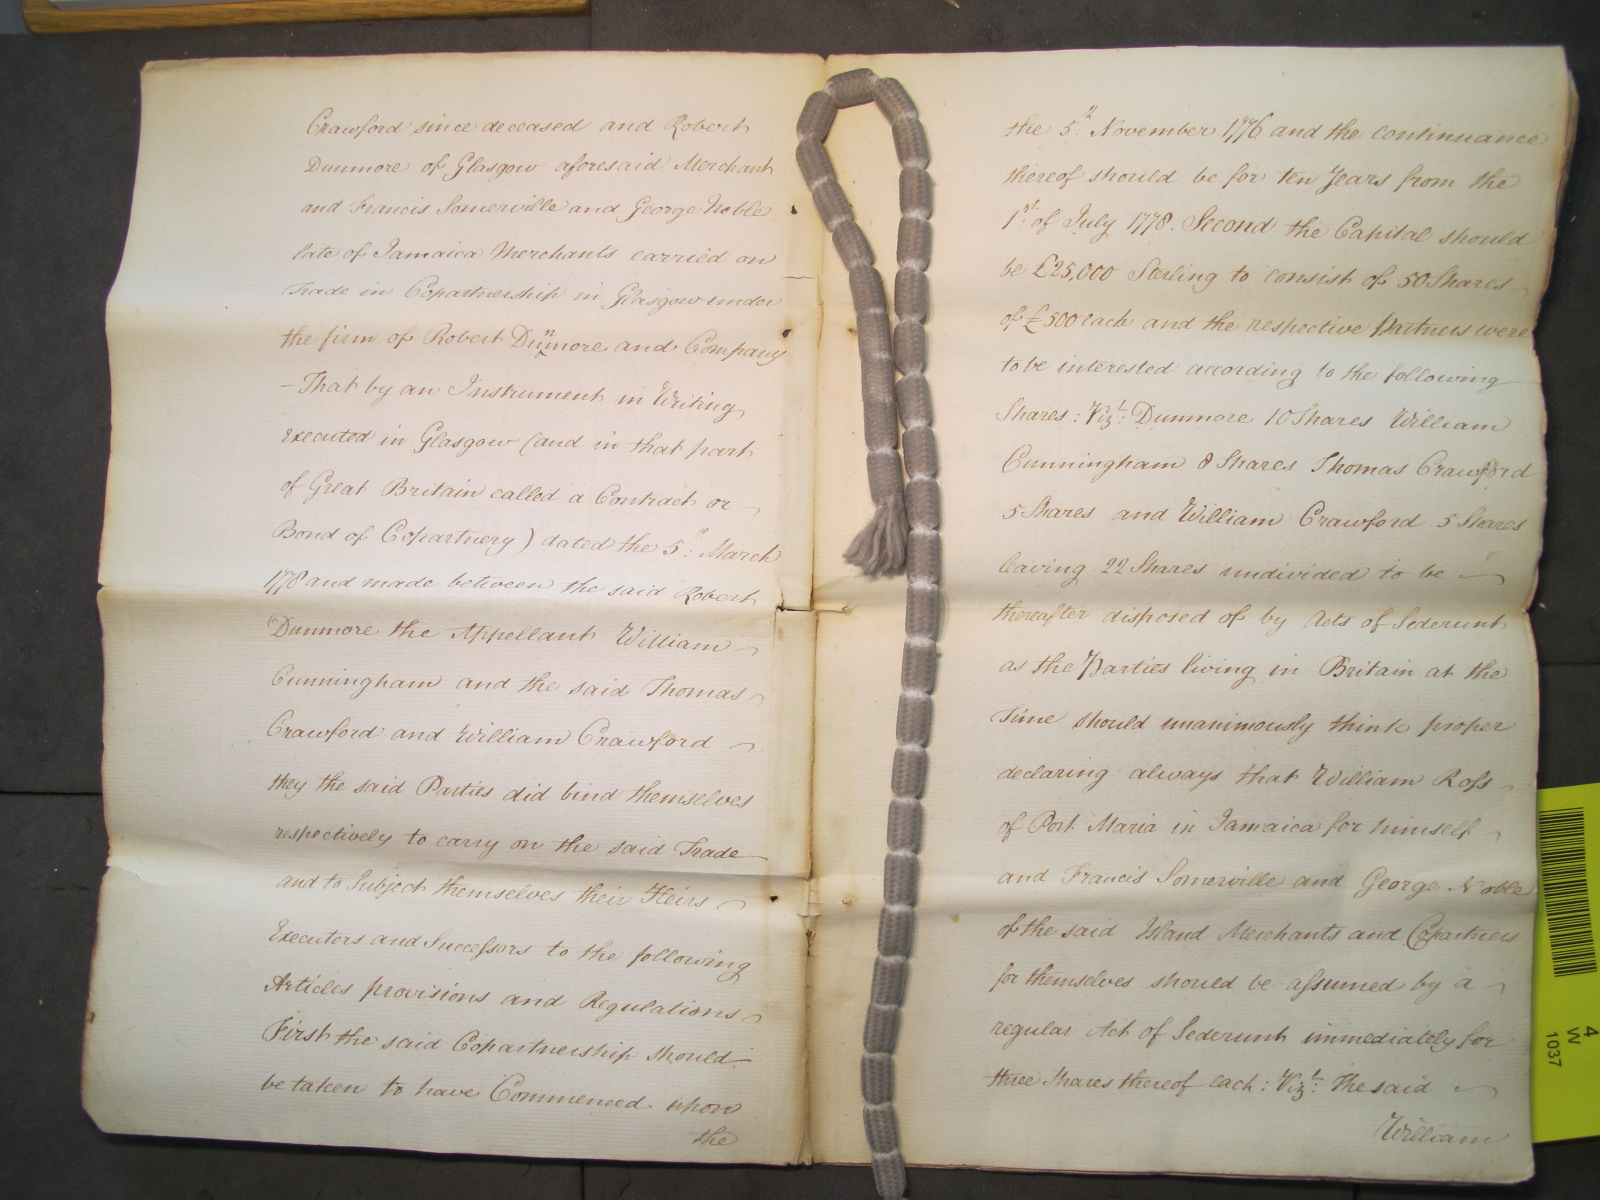 Crawford since deceased and Robert
Dunmore of Glasgow aforesaid Merchant
and Francis Somerville and George Noble
late of Jamaica Merchants carried on
Trade in Copartnership in Glasgow under
the firm of Robert Dunmore and Company
– That by an Instrument in Writing
executed in Glasgow (and in that part
of Great Britain called a Contract or
Bond of Copartnery) dated the 5th: March
1778 and made between the said Robert
Dunmore the Appellant William
Cunningham and the said Thomas
Crawford and William Crawford
they the said Parties did bind themselves
respectively to carry on the said Trade
and to Subject themselves their Heirs
Executors and Successors to the following
Articles provisions and Regulations
First the said Copartnership should
be taken to have Commenced upon
the
the 5th November 1776 and the continuance
thereof should be for ten Years from the
1st: of July 1778. Second the Capital should
be £25,000 Sterling to consist of 50 Shares
of £500 each and the respective Partners were
to be interested according to the following
Shares: Vizt: Dunmore 10 Shares William
Cunningham 8 Shares Thomas Crawford
5 Shares and William Crawford 5 Shares
leaving 22 Shares undivided to be
thereafter disposed of by Acts of Sederunt
as the Parties living in Britain at the
Time should unanimously think proper
declaring always that William Ross
of Port Maria in Jamaica for himself
and Francis Somerville and George Noble
of the said Island Merchants and Copartners
for themselves should be assumed by a
regular Act of Sederunt immediately for
three Shares thereof each: Vizt: The said
William
4
W
1037